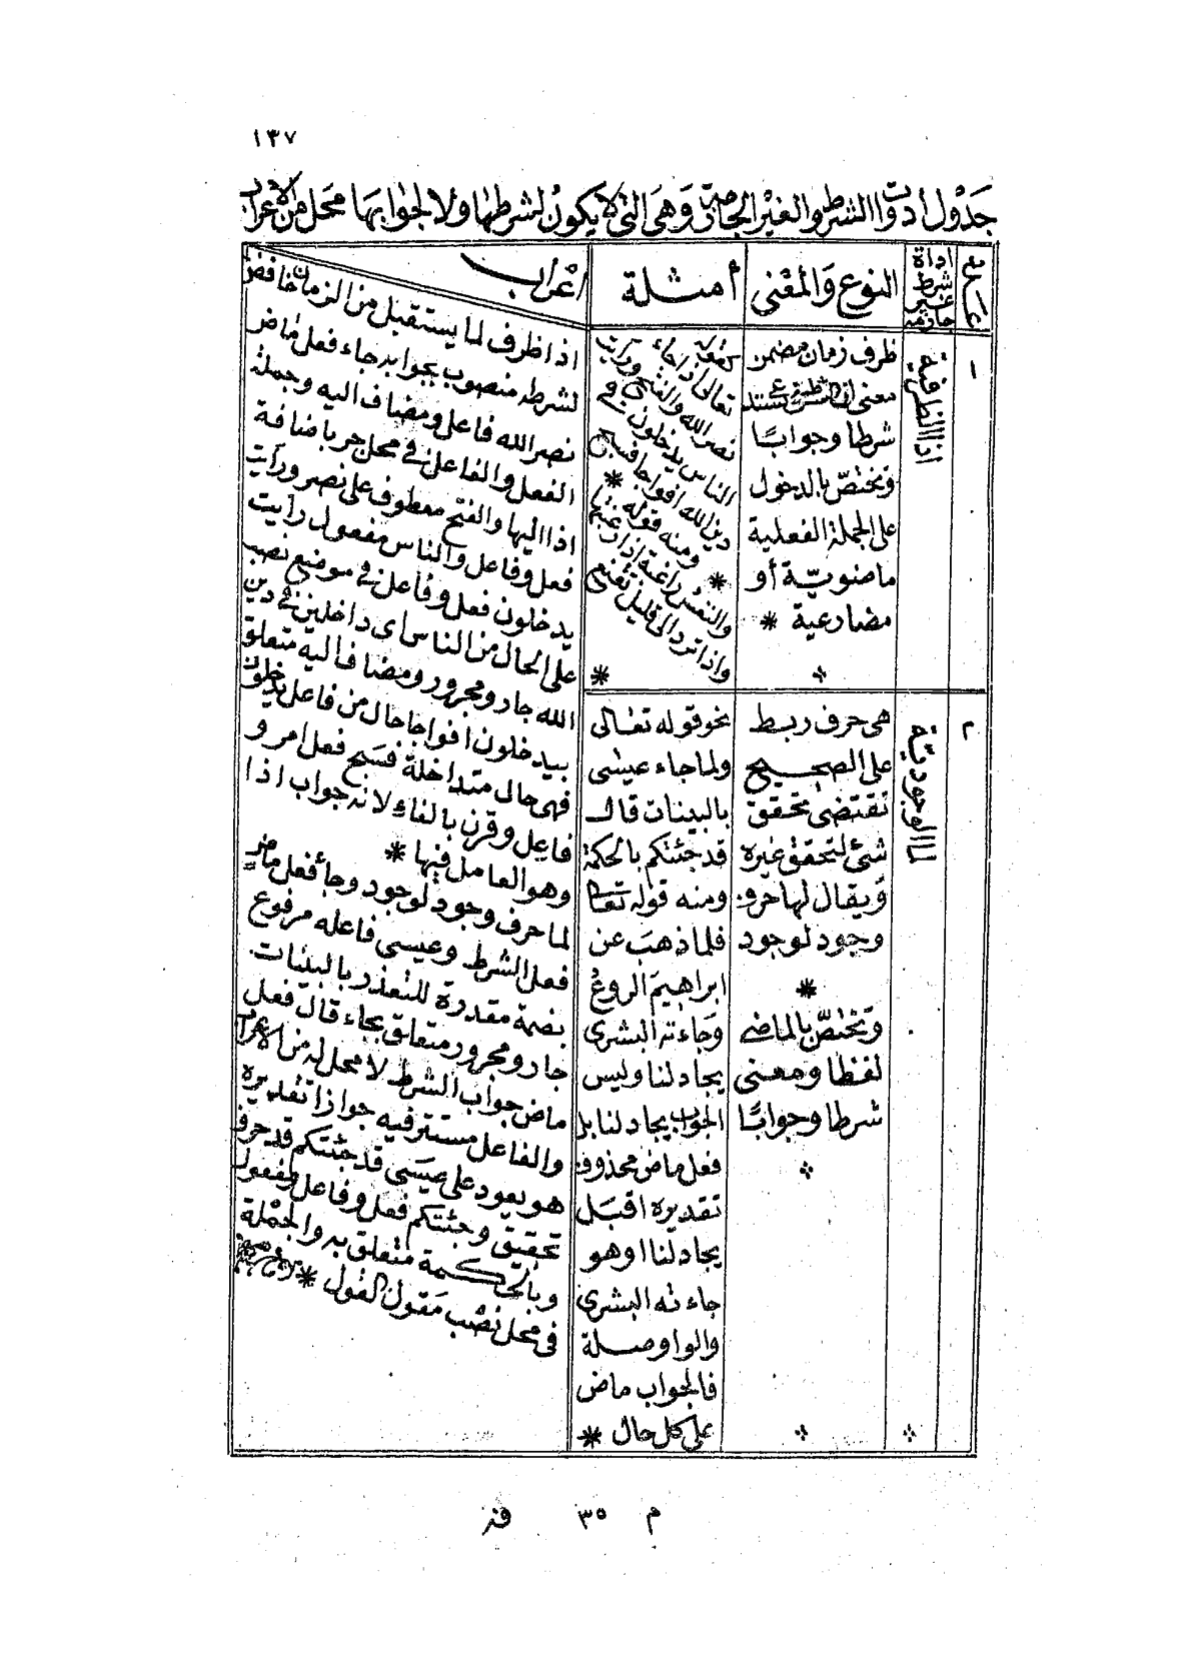 ١٣٧
جدول أدوات الشرط والغير الجازمة وهي التي لا يكون لشرطها ولا لجوابها محل من الاعراب
اداة
شرط
غير
جازمه
النوع والمعنى
أمثلة
اعراب
١
اذا الظرفية
ظرف زمان مضمن
معنى ان الشرطية
شرطا وجوابًا
وتختصّ بالدخول
على الجملة الفعلية
ماضويّة أو
مضارعية *
كقوله
تعالى اذا جاء
نصر الله والفتح ورأيت
الناس يدخلون في
دين الله افواجا فسبح
* ومنه قوله *
والنفس راغبة اذا رغبتها
واذا ترد الى قليل تقنع
*
اذا ظرف لما يستقبل من الزمان خافض
لشرطه منصوب بجوابه جاء فعل ماض
نصر الله فاعل ومضاف اليه وجملة
الفعل والفاعل في محل جر باضافة
اذا اليها والفتح معطوف على نصر ورأيت
فعل وفاعل والناس مفعول رأيت
يدخلون فعل وفاعل في موضع نصب
على الحال من الناس اى داخلين في دين
الله جار ومجرور ومضاف اليه متعلق
بيدخلون افواجا حال من فاعل يدخلون
فهى حال متداخلة فسبح فعل امر و
فاعل وقرن بالفاء لانه جواب اذا
وهو العامل فيها *
٢
لما الوجودية
هى حرف ربط
على الصحيح
تقتضى تحقق
شئ لتحقق غيره
ويقال لها حرف
وجود لوجود
*
وتختصّ بالماضى
لفظا ومعنى
شرطا وجوابًا
نحو قوله تعالى
ولما جاء عيسى
بالبينات قال
قد جئتكم بالحكمة
ومنه قوله تعالى
فلما ذهب عن
ابراهيم الروعُ
وجاءته البشرى
يجادلنا وليس
الجواب يجادلنا بل
فعل ماض محذوف
تقديره اقبل
يجادلنا او هو
جاءته البشرى
والواو صلة
فالجواب ماض
على كل حال *
لما حرف وجود لوجود وجاء فعل ماض
فعل الشرط وعيسى فاعله مرفوع
بضمة مقدرة للتعذر بالبينات
جار ومجرور متعلق بجاء قال فعل
ماض جواب الشرط لا محل له من الاعراب
والفاعل مستتر فيه جوازا تقديره
هو يعود على عيسى قد جئتكم قد حرف
تحقيق وجئتكم فعل وفاعل ومفعول
وبالحكمة متعلق به والجملة
في محل نصب مقول القول *
م ٣٥